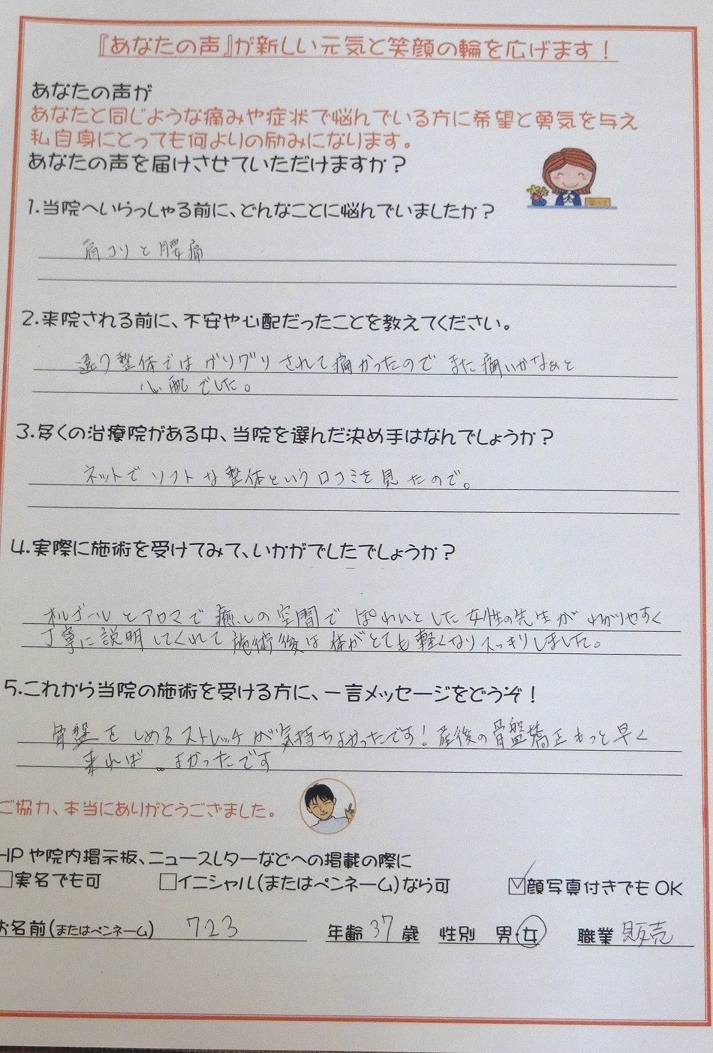 『あなたの声』が新しい元気と笑顔の輪を広げます！
あなたの声が
あなたと同じような痛みや症状で悩んでいる方に希望と勇気を与え
私自身にとっても何よりの励みになります。
あなたの声を届けさせていただけますか？
1.当院へいらっしゃる前に、どんなことに悩んでいましたか？
肩コリと腰痛
2.来院される前に、不安や心配だったことを教えてください。
違う整体ではグリグリされて痛かったのでまた痛いかなぁと
心配でした。
3.多くの治療院がある中、当院を選んだ決め手はなんでしょうか？
ネットでソフトな整体という口コミを見たので。
4.実際に施術を受けてみて、いかがでしたでしょうか？
オルゴールとアロマで癒しの空間でぽわんとした女性の先生がわかりやすく
丁寧に説明してくれて施術後は体がとても軽くなりスッキリしました。
5.これから当院の施術を受ける方に、一言メッセージをどうぞ！
骨盤をしめるストレッチが気持ちよかったです！産後の骨盤矯正もっと早く
来れば よかったです
ご協力、本当にありがとうございました。
HPや院内掲示板、ニュースレターなどへの掲載の際に
□実名でも可 □イニシャル(またはペンネーム)なら可 ☑顔写真付きでもOK
お名前(またはペンネーム) 723 年齢 37 歳 性別 男・女 職業 販売